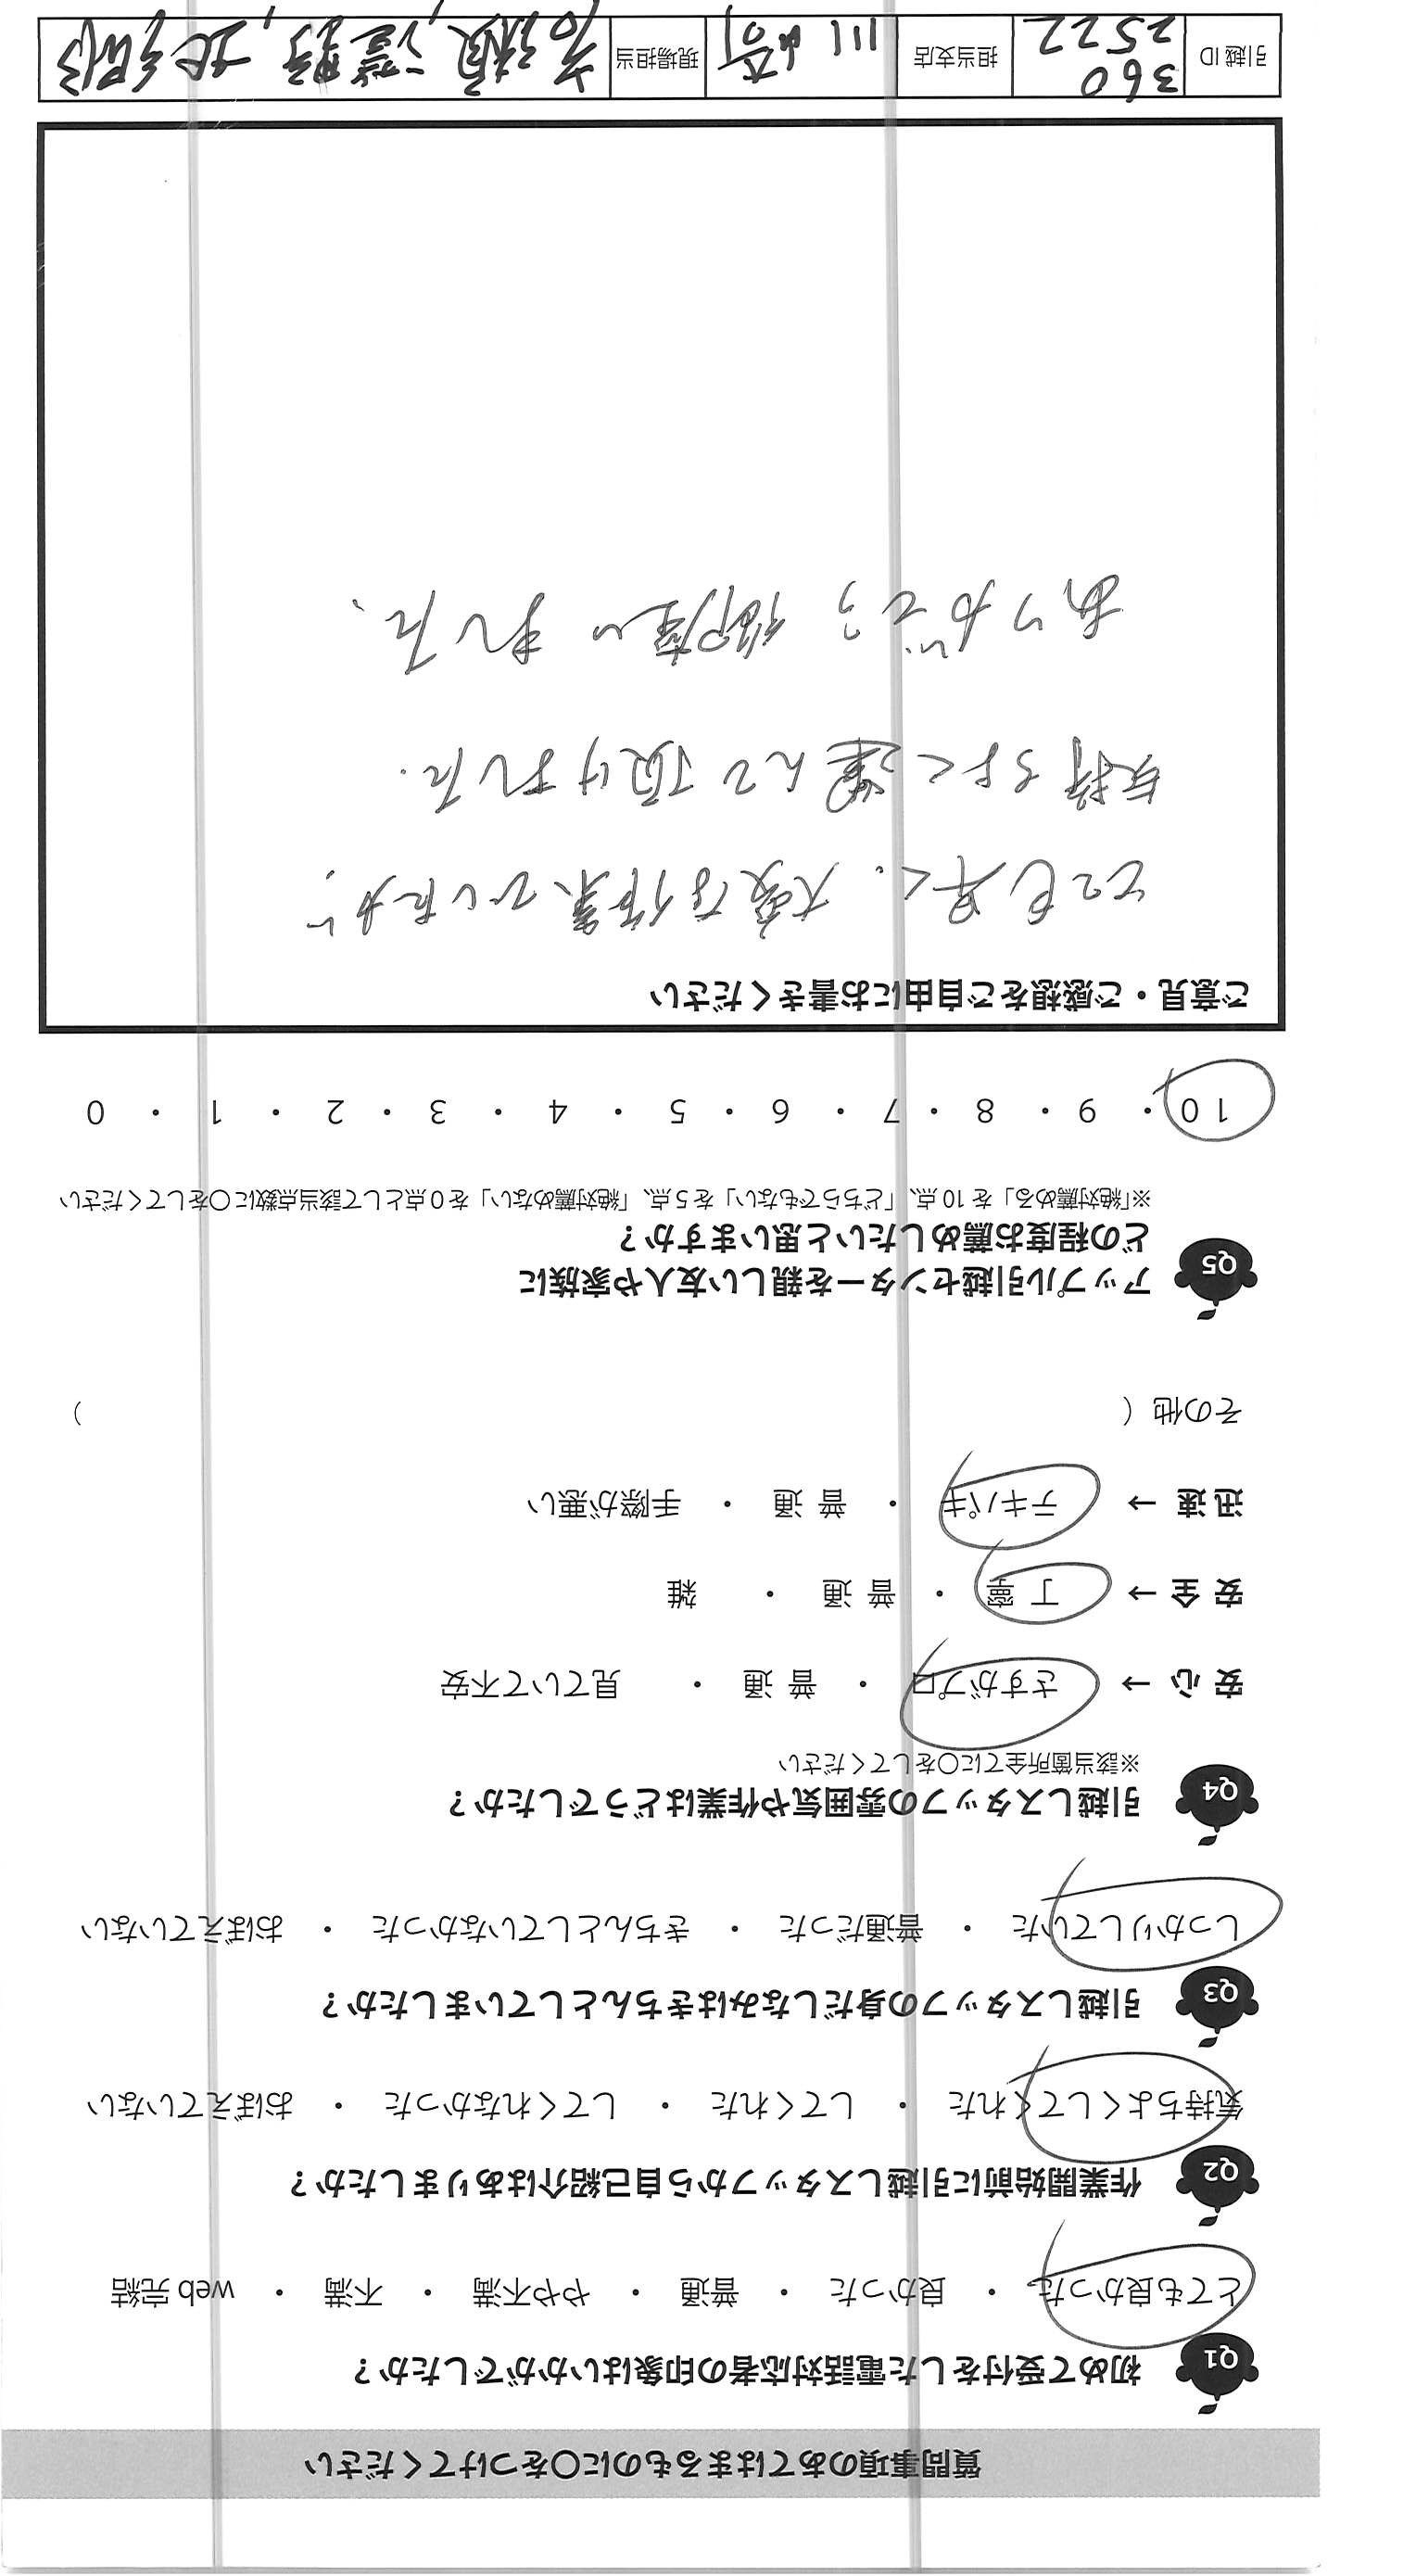 質問事項のあてはまるものに〇をつけてください
Q1 初めて受付をした電話対応者の印象はいかがでしたか？
とても良かった ・ 良かった ・ 普通 ・ やや不満 ・ 不満 ・ web 完結
Q2 作業開始前に引越しスタッフから自己紹介はありましたか？
気持ちよくしてくれた ・ してくれた ・ してくれなかった ・ おぼえていない
Q3 引越しスタッフの身だしなみはきちんとしていましたか？
しっかりしていた ・ 普通だった ・ きちんとしていなかった ・ おぼえていない
Q4 引越しスタッフの雰囲気や作業はどうでしたか？
※該当箇所全てに〇をしてください
安 心 → さすがプロ ・ 普 通 ・ 見ていて不安
安 全 → 丁 寧 ・ 普 通 ・ 雑
迅 速 → テキパキ ・ 普 通 ・ 手際が悪い
その他（ ）
Q5 アップル引越センターを親しい友人や家族に
どの程度お薦めしたいと思いますか？
※「絶対薦める」を 10 点、「どちらでもない」を 5 点、「絶対薦めない」を 0 点として該当点数に〇をしてください
10 ・ 9 ・ 8 ・ 7 ・ 6 ・ 5 ・ 4 ・ 3 ・ 2 ・ 1 ・ 0
ご意見・ご感想をご自由にお書きください
とても早く、大変な作業でしたが、
気持ちよく運んで頂けました.
ありがとう御座いました、
引越 ID 360
2522 担当支店 川崎 現場担当